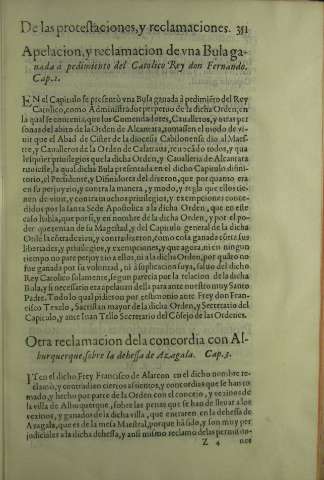 De las protestaciones, y reclamaciones. 351
Apelacion, y reclamacion de vna Bula ga-
nada à pedimiento del Catolico Rey don Fernando.
Cap. 2.
EN el Capitulo se presentò vna Bula ganada à pedimiẽto del Rey
Catolico, como Administrador perpetuo de la dicha Orden, en
la qual se contenia, que los Comendadores, Caualleros, y otras per
sonas del abito de la Orden de Alcantara, tomassen el modo de vi-
uir que el Abad de Cistel de la diocesis Cabilonense dio al Maes-
tre, y Caualleros de la Orden de Calatraua, reuocãdo todos, y qua
lesquier priuilegios que la dicha Orden, y Caualleria de Alcantara
tuuiesse, la qual dicha Bula presentada en el dicho Capitulo difini-
torio, el Presidente, y Difinidores del dixeron, que por quanto era
en su perjuyzio, y contra la manera, y modo, y regla que ellos tie-
nen de viuir, y contra muchos priuilegios, y exempciones conce-
didos por la santa Sede Apostolica à la dicha Orden, que en este
caso habla, que por si, y en nombre de la dicha Orden, y por el po-
der que tenian de su Magestad, y del Capitulo general de la dicha
Ordẽ la cõtradezian, y contradixeron, como cosa ganada cõtra sus
libertades, y priuilegios, y exempciones, y que agora, ni en ningun
tiempo no pare perjuyzio a ellos, ni a la dicha Orden, por quãto no
fue ganada por su voluntad, ni à suplicacion suya, saluo del dicho
Rey Catolico solamente, segun parecia por la relacion de la dicha
Bula, y si necessario era apelauan della para ante nuestro muy Santo
Padre. Todo lo qual pidieron por testimonio ante Frey don Fran-
cisco Texelo, Sacristan mayor de la dicha Orden, y Secretario del
Capitulo, y ante Iuan Tello Secretario del Cõsejo de las Ordenes.
Otra reclamacion de la concordia con Al-
burquerque, sobre la dehessa de Azagala. Cap. 3.
ITen el dicho Frey Francisco de Alarcon en el dicho nombre re-
clamò, y contradixo ciertos assientos, y concordias que se han to
mado, y hecho por parte de la Orden con el concejo, y vezinos de
la villa de Alburquerque, sobre las penas que se han de lleuar a los
vezinos, y ganados de la dicha villa, que entraren en la dehessa de
Azagala, que es de la mesa Maestral, porque hã sido, y son muy per
judiciales a la dicha dehessa, y ansi mismo reclamo delas permutio-
Z 4 nes